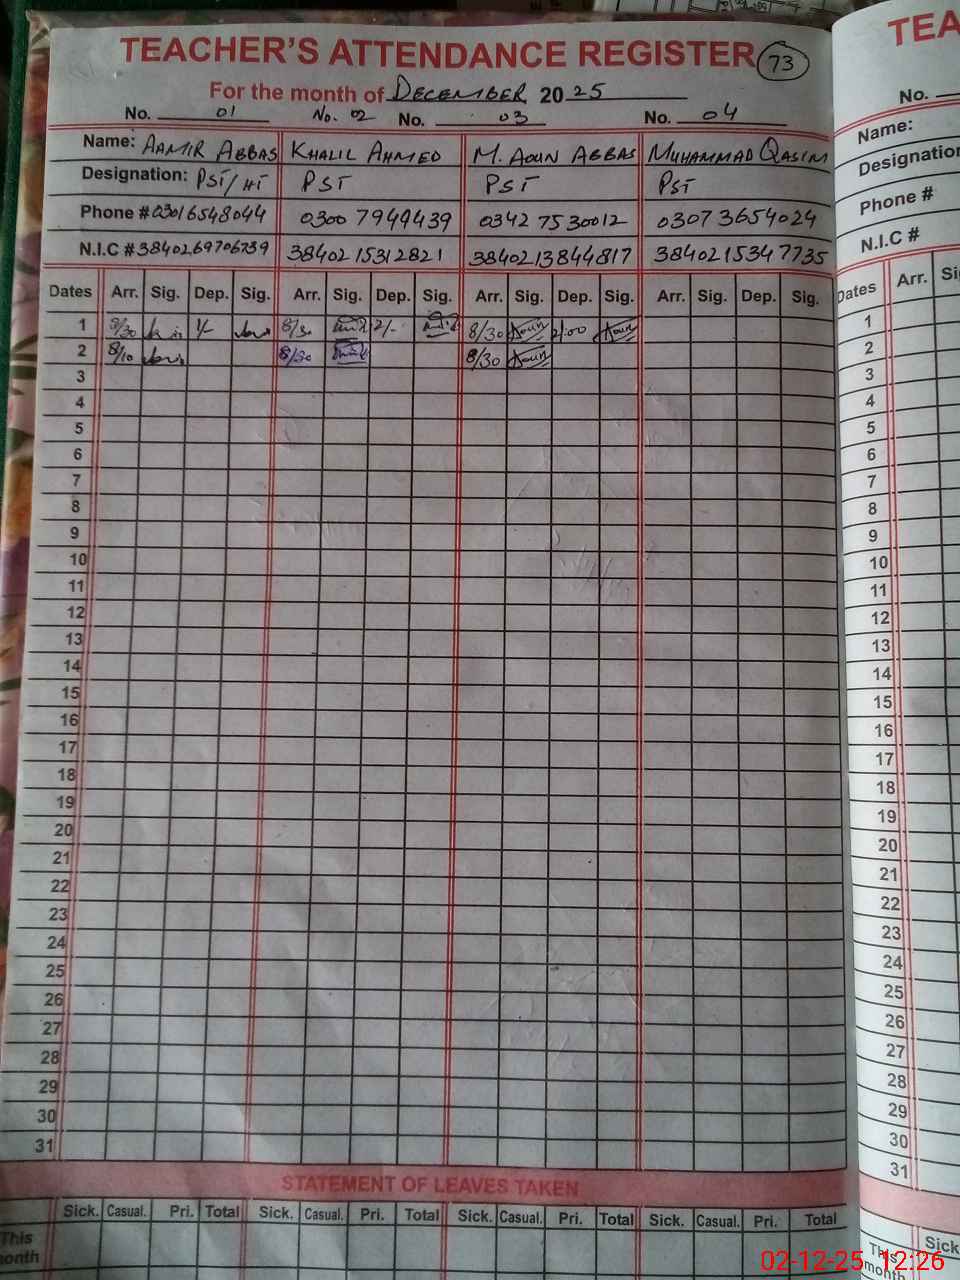 TEACHER'S ATTENDANCE REGISTER 73
For the month of DECEMBER 2025
No. 01 No. 02 No. 03 No. 04
Name: AAMIR ABBAS KHALIL AHMED M. AOUN ABBAS MUHAMMAD QASIM
Designation: PST/HT PST PST PST
Phone # 03016548044 03007949439 03427530012 03073654024
N.I.C # 3840269706739 3840215312821 3840213844817 3840215347735
Dates Arr. Sig. Dep. Sig. Arr. Sig. Dep. Sig. Arr. Sig. Dep. Sig. Arr. Sig. Dep. Sig.
1 8/30 2/- 8/30 Aoun 2/:00 Aoun
2 8/10 8/30 8/30 Aoun
3
4
5
6
7
8
9
10
11
12
13
14
15
16
17
18
19
20
21
22
23
24
25
26
27
28
29
30
31
STATEMENT OF LEAVES TAKEN
Sick. Casual. Pri. Total Sick. Casual. Pri. Total Sick. Casual. Pri. Total Sick. Casual. Pri. Total
This
month
TEA
No.
Name:
Designation
Phone #
N.I.C #
Dates Arr. Si
1
2
3
4
5
6
7
8
9
10
11
12
13
14
15
16
17
18
19
20
21
22
23
24
25
26
27
28
29
30
31
Sick
This
month
02-12-25 12:26